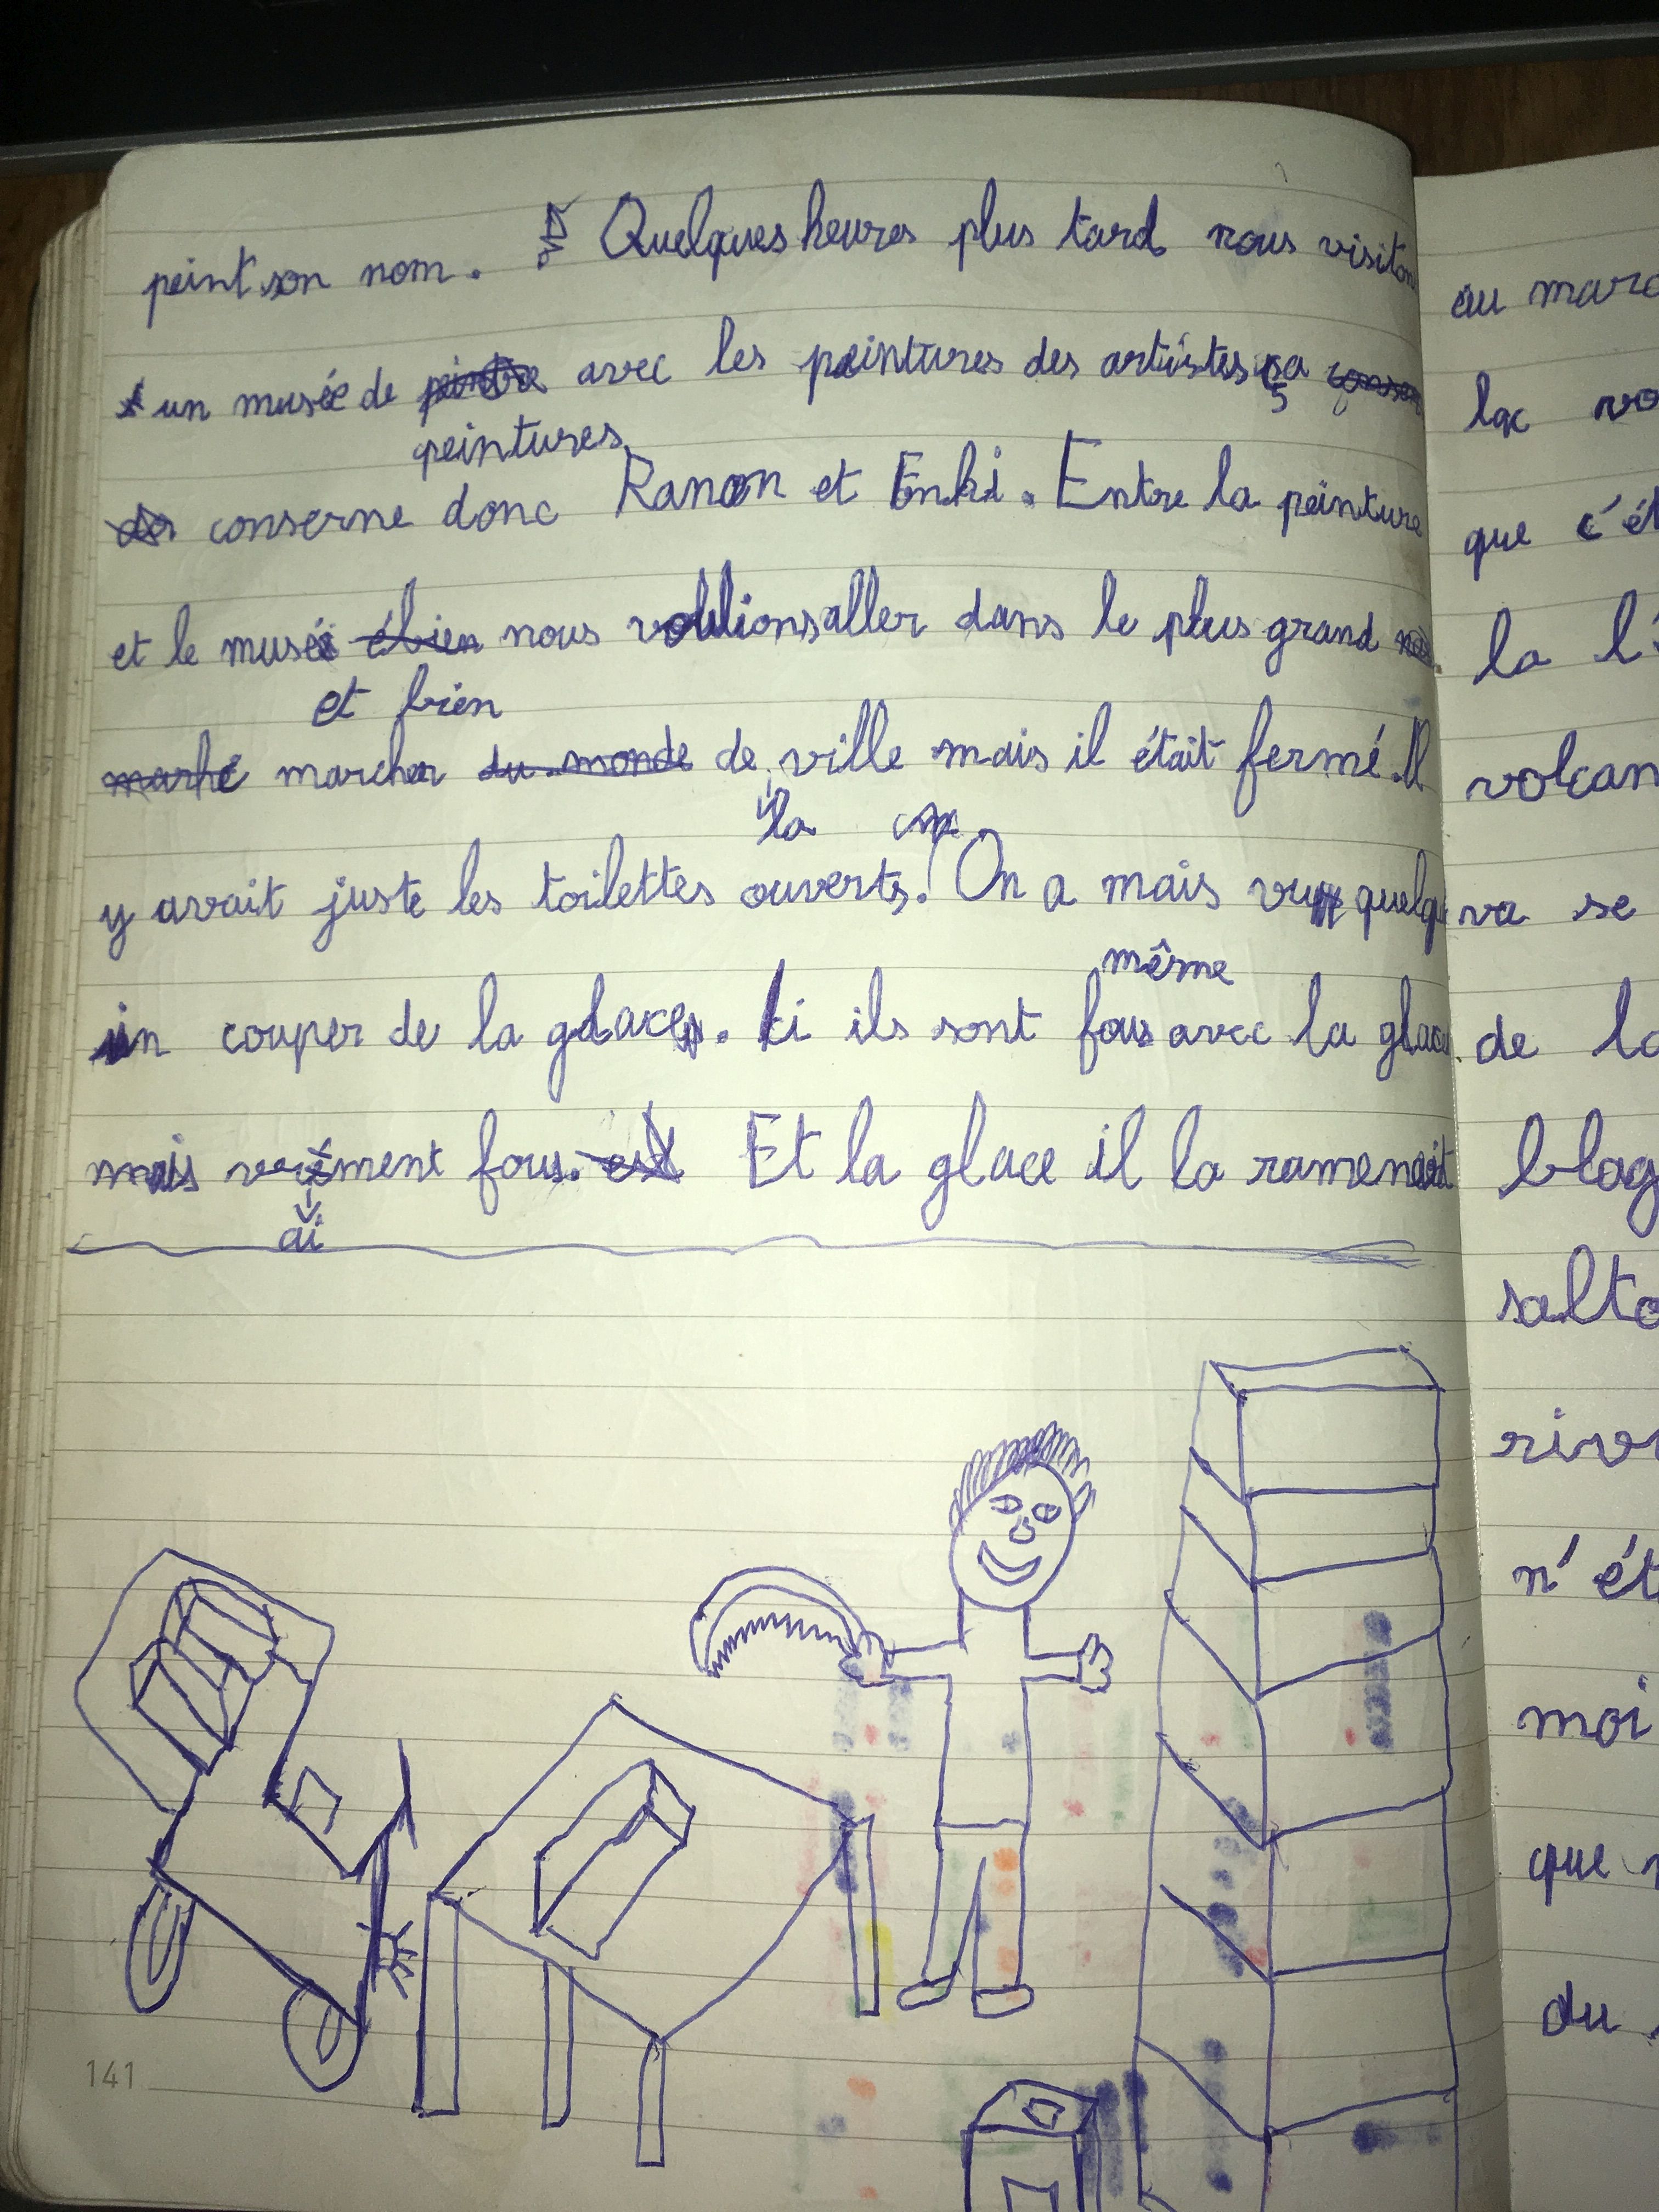 peint son nom. Quelques heures plus tard nous visiton
un musée de peintre avec les peintures des artistes ça
peintures
conserne donc Ranon et Enki. Entre la peinture
et le musée ébien nous voulions aller dans le plus grand
et bien
marhé marcher du monde de ville mais il était fermé. Il
la
y avait juste les toilettes ouverts! On a mais vu quelqu
même
un couper de la glace. Ici ils sont fous avec la glace
mais vrément fous. Et la glace il la ramenait
ai
141
au marc
lac vo
que c'ét
la l'
volcan
va se
de la
blag
salto
rivi
n'ét
moi
que
du